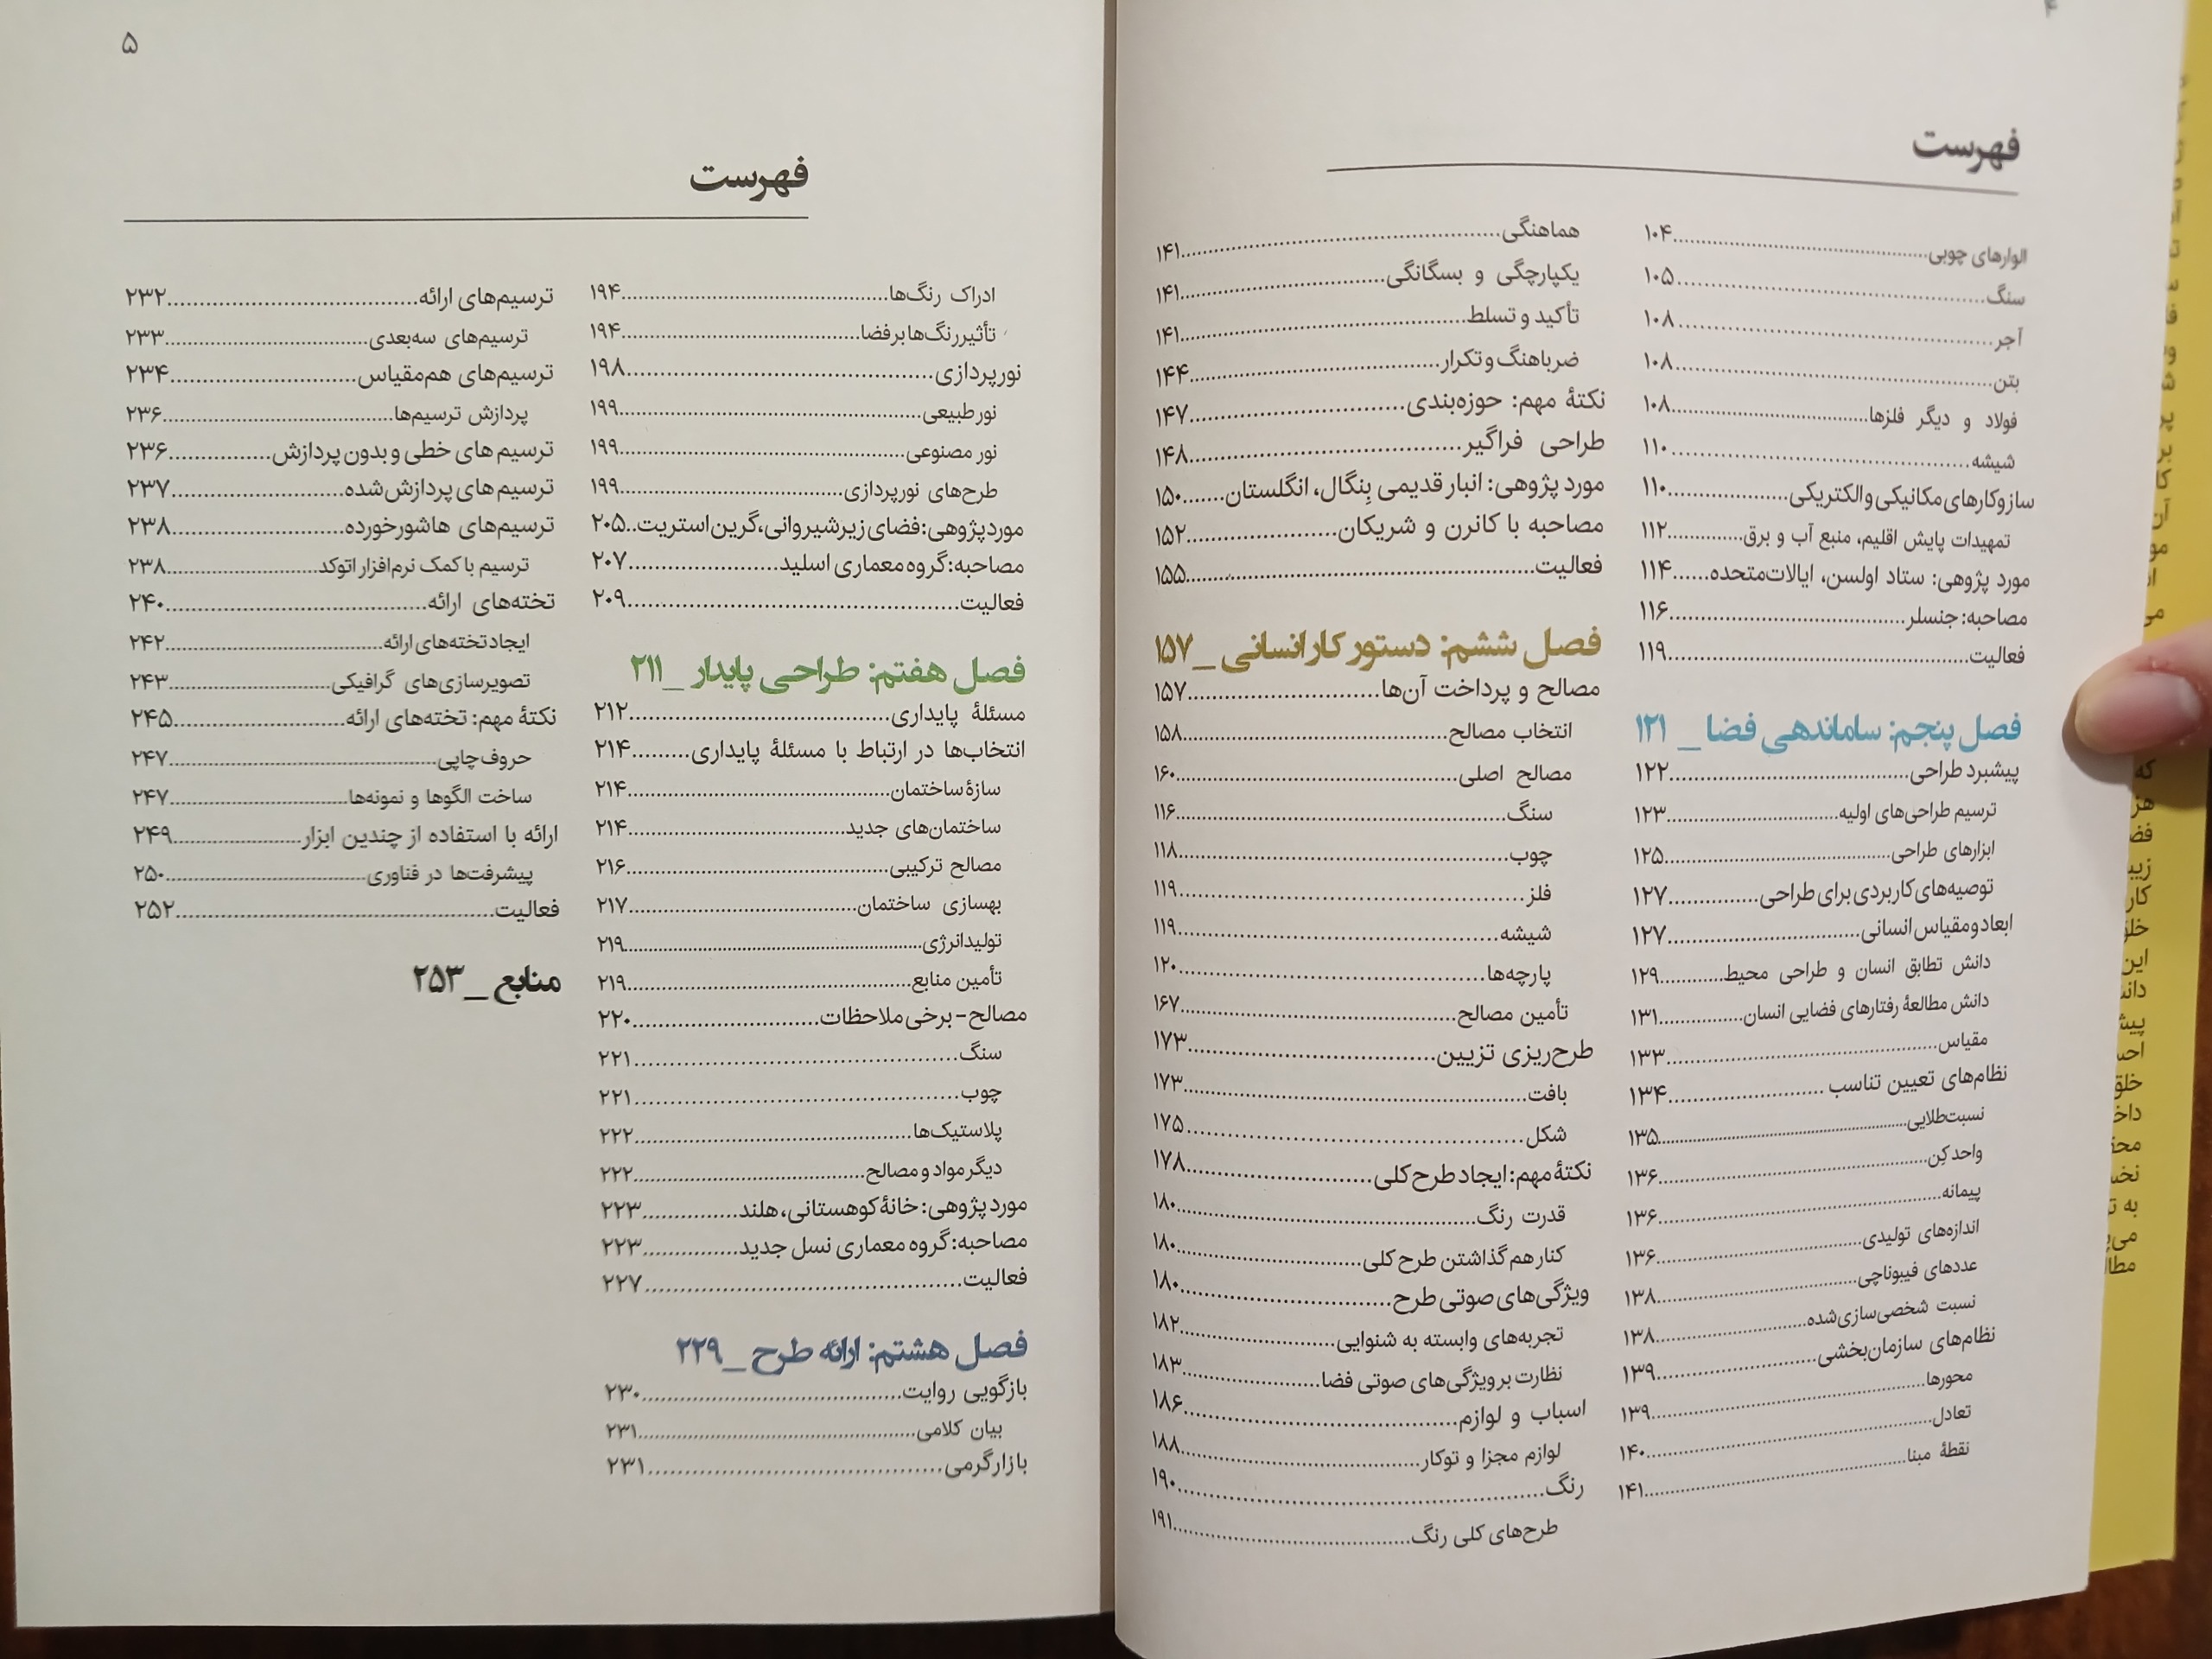 ۴
فهرست
الوارهای چوبی..........۱۰۴
سنگ..........۱۰۵
آجر..........۱۰۸
بتن..........۱۰۸
فولاد و دیگر فلزها..........۱۰۸
شیشه..........۱۱۰
سازوکارهای مکانیکی و الکتریکی..........۱۱۰
تمهیدات پایش اقلیم، منبع آب و برق..........۱۱۲
مورد پژوهی: ستاد اولسن، ایالات‌متحده..........۱۱۴
مصاحبه: جنسلر..........۱۱۶
فعالیت..........۱۱۹
فصل پنجم: ساماندهی فضا _ ۱۲۱
پیشبرد طراحی..........۱۲۲
ترسیم طراحی‌های اولیه..........۱۲۳
ابزارهای طراحی..........۱۲۵
توصیه‌های کاربردی برای طراحی..........۱۲۷
ابعاد و مقیاس انسانی..........۱۲۷
دانش تطابق انسان و طراحی محیط..........۱۲۹
دانش مطالعهٔ رفتارهای فضایی انسان..........۱۳۱
مقیاس..........۱۳۳
نظام‌های تعیین تناسب..........۱۳۴
نسبت طلایی..........۱۳۵
واحد کِن..........۱۳۶
پیمانه..........۱۳۶
اندازه‌های تولیدی..........۱۳۶
عددهای فیبوناچی..........۱۳۸
نسبت شخصی‌سازی‌شده..........۱۳۸
نظام‌های سازمان‌بخشی..........۱۳۹
محورها..........۱۳۹
تعادل..........۱۴۰
نقطهٔ مبنا..........۱۴۱
هماهنگی..........۱۴۱
یکپارچگی و بسگانگی..........۱۴۱
تأکید و تسلط..........۱۴۱
ضرباهنگ و تکرار..........۱۴۴
نکتهٔ مهم: حوزه‌بندی..........۱۴۷
طراحی فراگیر..........۱۴۸
مورد پژوهی: انبار قدیمی بِنگال، انگلستان..........۱۵۰
مصاحبه با کانرن و شریکان..........۱۵۲
فعالیت..........۱۵۵
فصل ششم: دستور کار انسانی _ ۱۵۷
مصالح و پرداخت آن‌ها..........۱۵۷
انتخاب مصالح..........۱۵۸
مصالح اصلی..........۱۶۰
سنگ..........۱۱۶
چوب..........۱۱۸
فلز..........۱۱۹
شیشه..........۱۱۹
پارچه‌ها..........۱۲۰
تأمین مصالح..........۱۶۷
طرح‌ریزی تزیین..........۱۷۳
بافت..........۱۷۳
شکل..........۱۷۵
نکتهٔ مهم: ایجاد طرح کلی..........۱۷۸
قدرت رنگ..........۱۸۰
کنار هم گذاشتن طرح کلی..........۱۸۰
ویژگی‌های صوتی طرح..........۱۸۰
تجربه‌های وابسته به شنوایی..........۱۸۲
نظارت بر ویژگی‌های صوتی فضا..........۱۸۳
اسباب و لوازم..........۱۸۶
لوازم مجزا و توکار..........۱۸۸
رنگ..........۱۹۰
طرح‌های کلی رنگ..........۱۹۱
۵
فهرست
ادراک رنگ‌ها..........۱۹۴
تأثیر رنگ‌ها بر فضا..........۱۹۴
نورپردازی..........۱۹۸
نور طبیعی..........۱۹۹
نور مصنوعی..........۱۹۹
طرح‌های نورپردازی..........۱۹۹
مورد پژوهی: فضای زیر شیروانی، گرین استریت..۲۰۵
مصاحبه: گروه معماری اسلید..........۲۰۷
فعالیت..........۲۰۹
فصل هفتم: طراحی پایدار _ ۲۱۱
مسئلهٔ پایداری..........۲۱۲
انتخاب‌ها در ارتباط با مسئلهٔ پایداری..........۲۱۴
سازهٔ ساختمان..........۲۱۴
ساختمان‌های جدید..........۲۱۴
مصالح ترکیبی..........۲۱۶
بهسازی ساختمان..........۲۱۷
تولید انرژی..........۲۱۹
تأمین منابع..........۲۱۹
مصالح - برخی ملاحظات..........۲۲۰
سنگ..........۲۲۱
چوب..........۲۲۱
پلاستیک‌ها..........۲۲۲
دیگر مواد و مصالح..........۲۲۲
مورد پژوهی: خانهٔ کوهستانی، هلند..........۲۲۳
مصاحبه: گروه معماری نسل جدید..........۲۲۳
فعالیت..........۲۲۷
فصل هشتم: ارائه طرح _ ۲۲۹
بازگویی روایت..........۲۳۰
بیان کلامی..........۲۳۱
بازارگرمی..........۲۳۱
ترسیم‌های ارائه..........۲۳۲
ترسیم‌های سه‌بعدی..........۲۳۳
ترسیم‌های هم‌مقیاس..........۲۳۴
پردازش ترسیم‌ها..........۲۳۶
ترسیم های خطی و بدون پردازش..........۲۳۶
ترسیم های پردازش‌شده..........۲۳۷
ترسیم‌های هاشورخورده..........۲۳۸
ترسیم با کمک نرم‌افزار اتوکد..........۲۳۸
تخته‌های ارائه..........۲۴۰
ایجاد تخته‌های ارائه..........۲۴۲
تصویرسازی‌های گرافیکی..........۲۴۳
نکتهٔ مهم: تخته‌های ارائه..........۲۴۵
حروف چاپی..........۲۴۷
ساخت الگوها و نمونه‌ها..........۲۴۷
ارائه با استفاده از چندین ابزار..........۲۴۹
پیشرفت‌ها در فناوری..........۲۵۰
فعالیت..........۲۵۲
منابع _ ۲۵۳